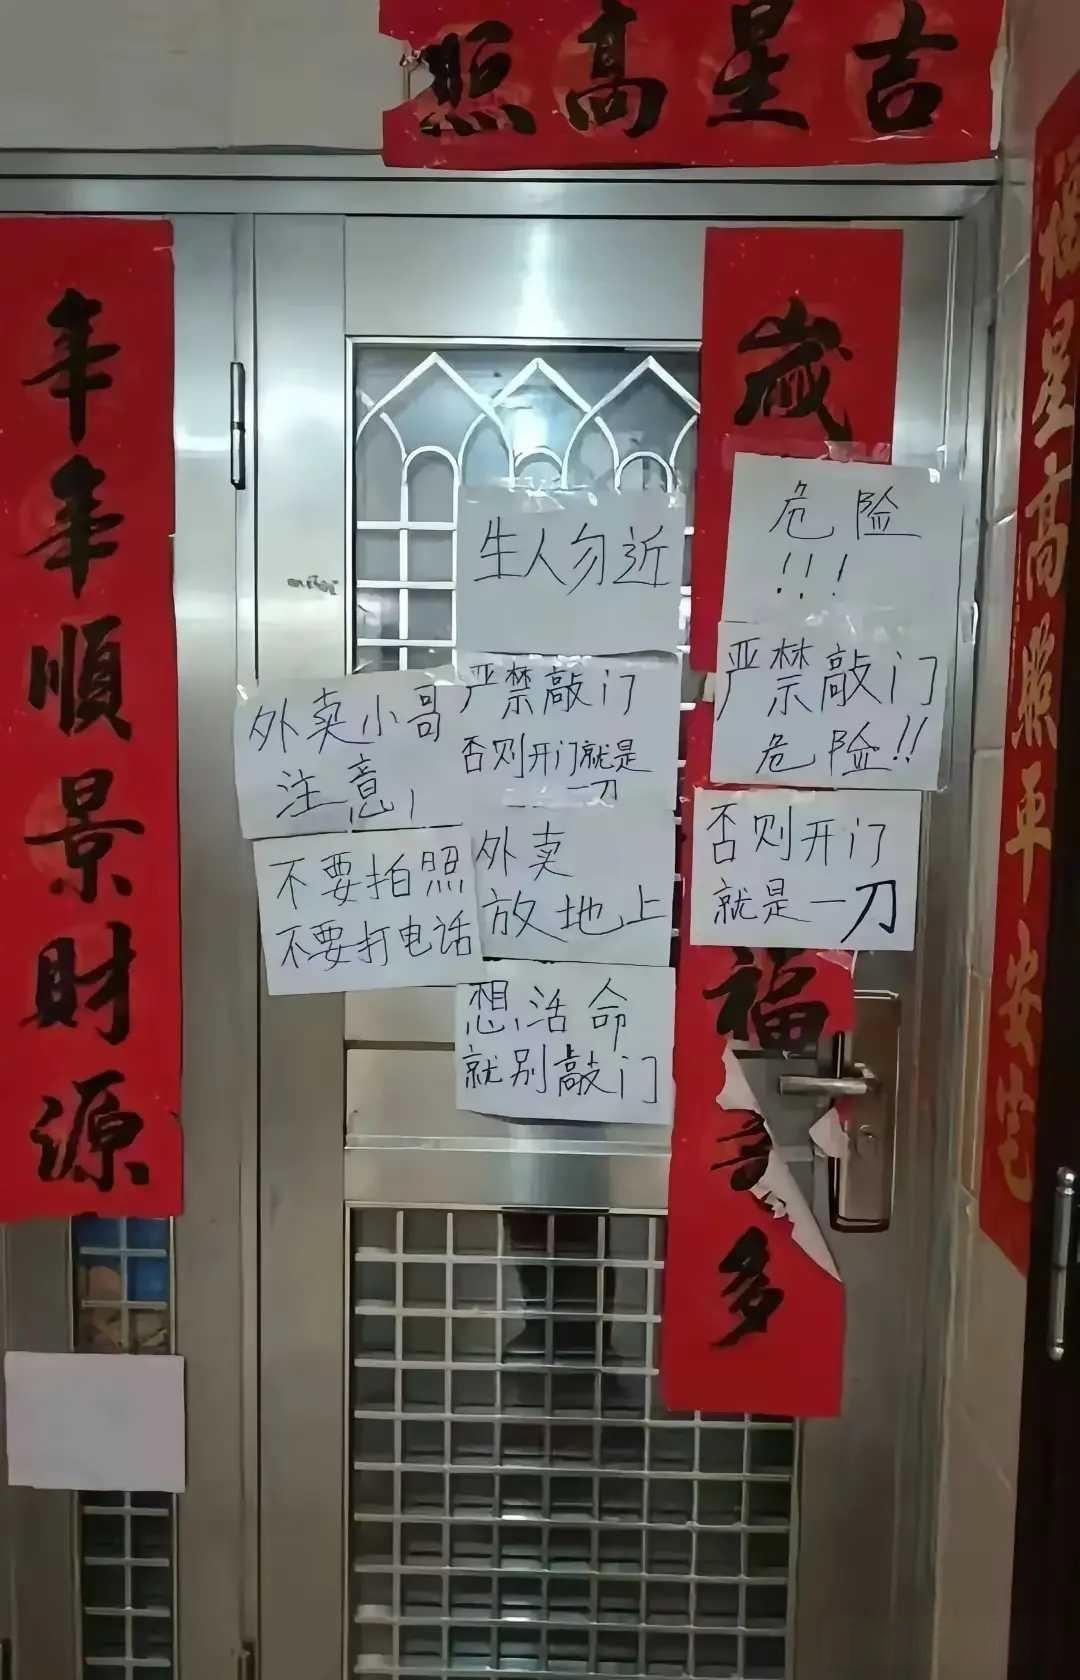 吉星高照
年年順景財源
歲
福
多
福星高照平安宅
生人勿近
严禁敲门
否则开门就是
一刀
外卖
放地上
想活命
就别敲门
外卖小哥
注意,
不要拍照
不要打电话
危险
!!!
严禁敲门
危险!!
否则开门
就是一刀